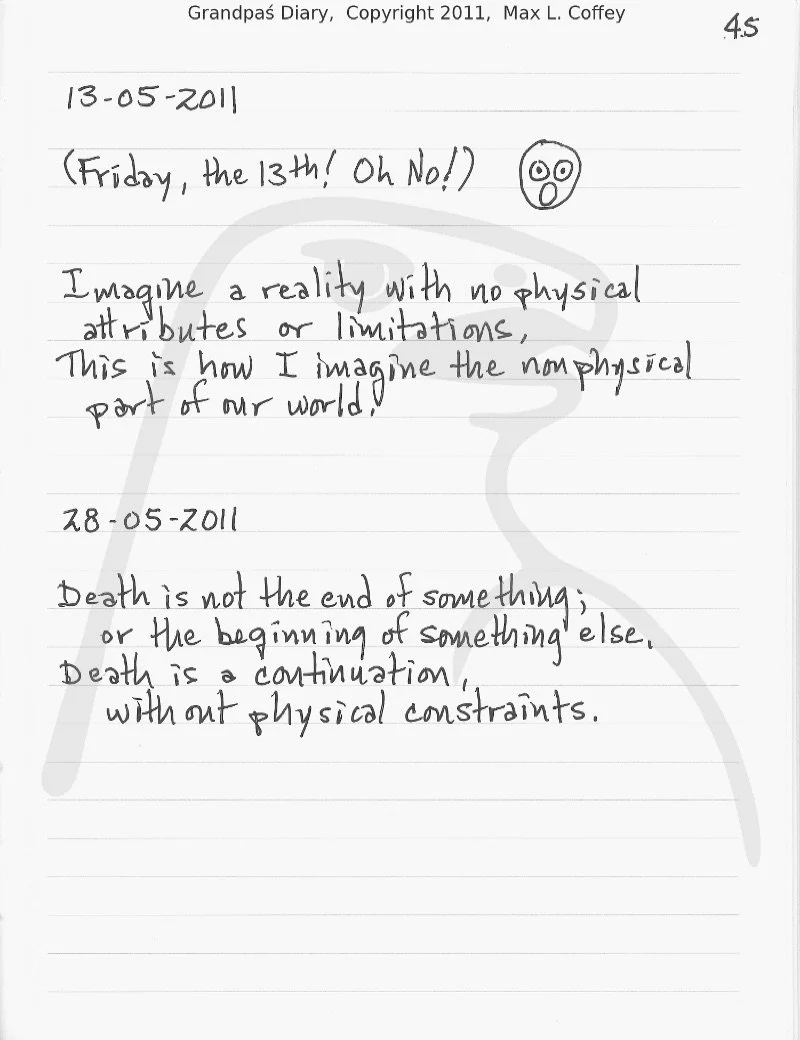 Grandpaś Diary, Copyright 2011, Max L. Coffey
45
13-05-2011
(Friday, the 13th! Oh No!)
Imagine a reality with no physical
attributes or limitations,
This is how I imagine the nonphysical
part of our world!
28-05-2011
Death is not the end of something;
or the beginning of something else.
Death is a continuation,
without physical constraints.